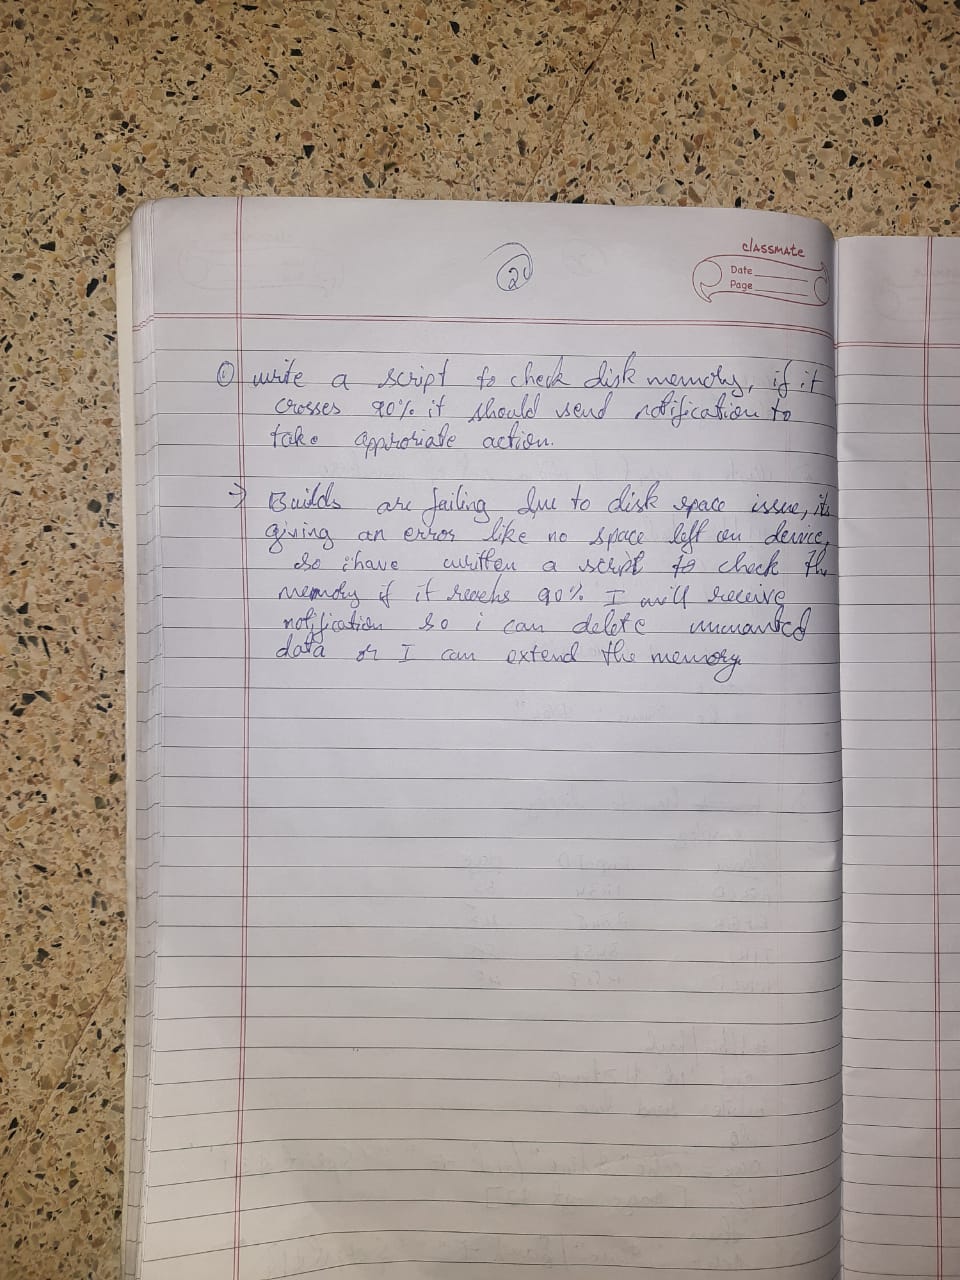 2
classmate
Date
Page
① write a script to check disk memory, if it
crosses 90% it should send notification to
take approriate action.
→ Builds are failing due to disk space issue, its
giving an error like no space left on device,
so i have written a script to check the
memory if it reachs 90% I will receive
notification so i can delete unwanted
data or I can extend the memory.